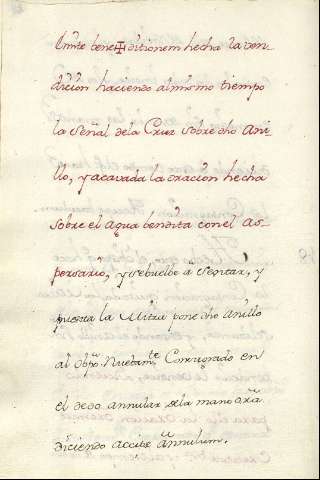 bene✠ditionem hecha la ven
dicion haciendo al mismo tiempo
la Señal dela Cruz sobre dho Ani-
llo, y acavada la oracion hecha
sobre el Agua bendita con el As-
persorio, y se buelbe a Sentar, y
puesta la Mitra pone dho Anillo
al Obpo. Nuevamte. Consagrado en
el dedo annular dela mano
diciendo accipe annulum.